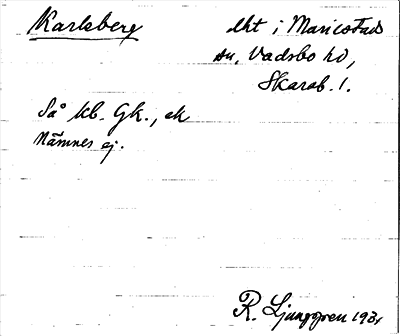 Karlsberg
lht i Mariestads
sn, Vadsbo hd,
Skarab. l.
Så kb. Gk., ek
Nämnes ej.
R. Ljunggren 1931